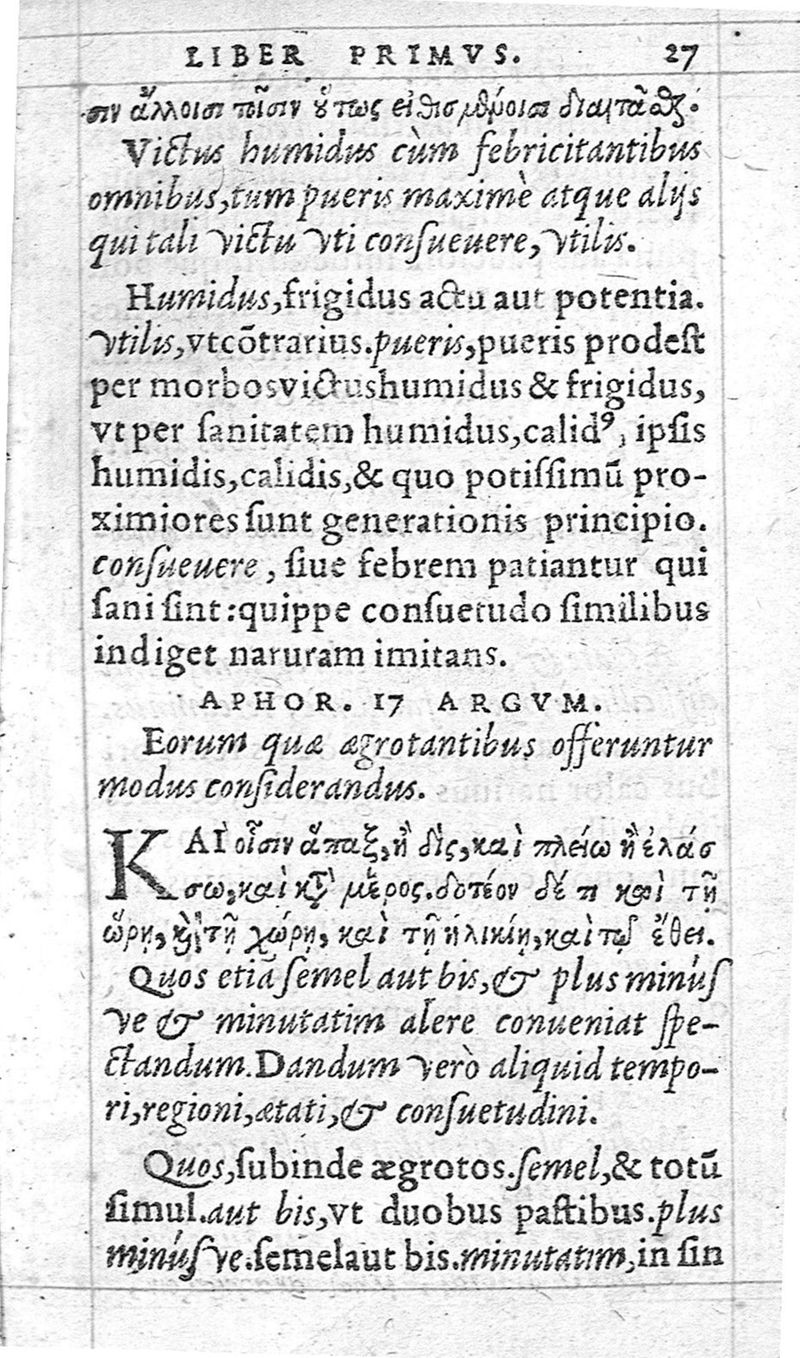 LIBER PRIMVS. 27
σιν ἄλλοισι τοῖσιν οὕτως εἰθισμένοισι διαιτᾶσθαι.
Victus humidus cùm febricitantibus
omnibus, tum pueris maximè atque alijs
qui tali victu vti consueuere, vtilis.
Humidus, frigidus actu aut potentia.
vtilis, vt cõtrarius. pueris, pueris prodest
per morbos victus humidus & frigidus,
vt per sanitatem humidus, calidꝰ, ipsis
humidis, calidis, & quo potissimũ pro-
ximiores sunt generationis principio.
consueuere, siue febrem patiantur qui
sani sint: quippe consuetudo similibus
indiget naturam imitans.
APHOR. 17 ARGVM.
Eorum quæ ægrotantibus offeruntur
modus considerandus.
ΚΑῚ οἷσιν ἅπαξ, ἢ δὶς, καὶ πλείω ἢ ἐλάσ
σω, καὶ κτ̀ μέρος. δοτέον δέ τι καὶ τῇ
ὥρῃ, καὶ τῇ χώρῃ, καὶ τῇ ἡλικίῃ, καὶ τῷ ἔθει.
Quos etiã semel aut bis, & plus minús
ve & minutatim alere conueniat spe-
ctandum. Dandum verò aliquid tempo-
ri, regioni, ætati, & consuetudini.
Quos, subinde ægrotos. semel, & totũ
simul. aut bis, vt duobus pastibus. plus
minúsve. semel aut bis. minutatim, in sin